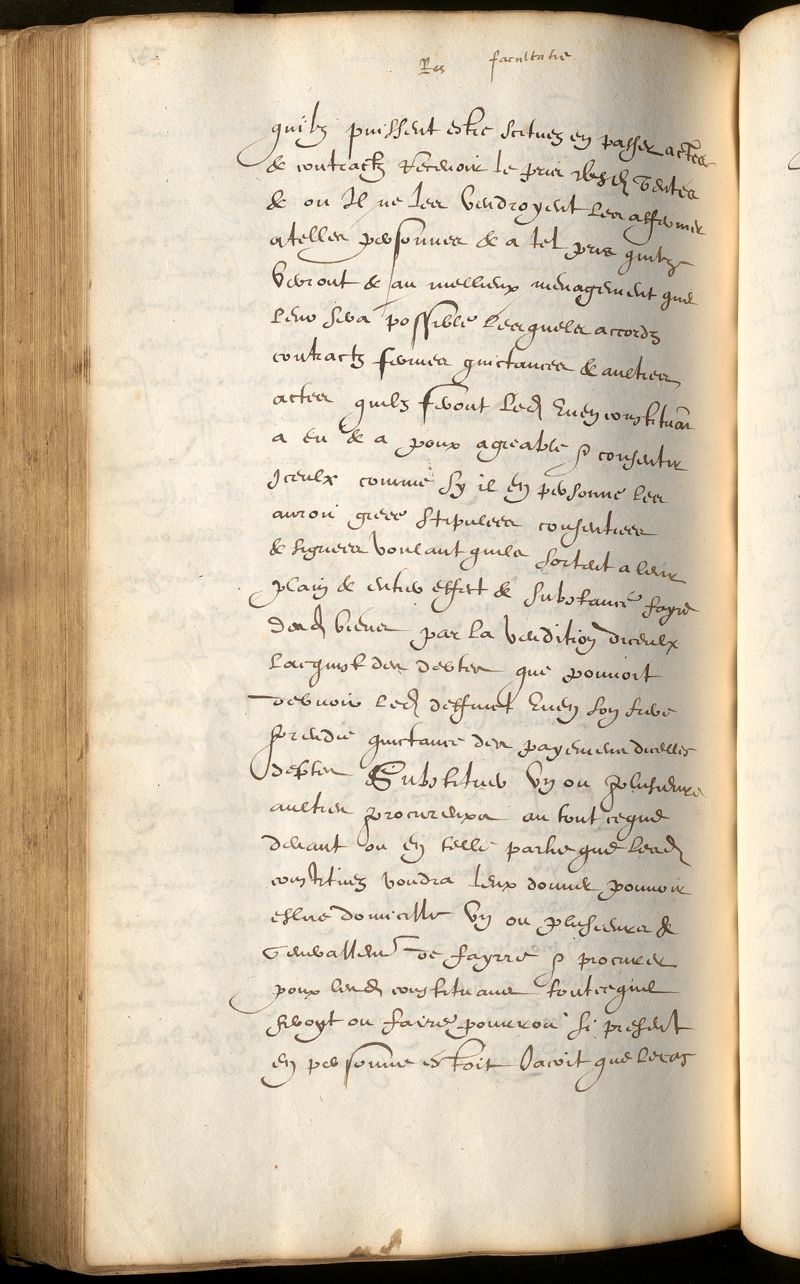 Res facultatis
quilz puissent estre scituez en passer actes
& contractz Recevoir le pris desd ventes
& ou Il ne les vendroyent les affermer
a telles personnes & a tel pris quilz
verront & au meilleux menagement que
leur sera possible lesquels accordz
contractz fermes quictances & aultres
actes quilz feront led Rnen constituan
a eu & a pour agreable p consentir
Iceulx comme sy il en personne les
auroi grees stipulees consenties
& signees voulant quilz sortent a leur
plain & entier effect & substance fayre
desd biens par la vendition diceulx
lacquist des debtes que pouvoit
debvoir led deffunct Rnen son frere
prendre quictance des payemens dicelles
debtes Substituer un ou plusieurs
aultres procureurs au tout ce que
devant ou en telle partie que lesd
constituez voudra leur donner pouvoir
eslire domicille un ou plusieurs &
generallemt de fayrre p procurer
pour lesd constituans tout ce quil
seroyt ou faire pourroi si present
en personne estoit Jacoit que le cas